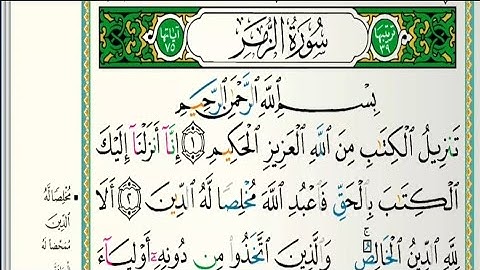 ترتيبها ٣٩ سُورَةُ الزُّمَرِ آيَاتُهَا ٧٥
بِسْمِ اللَّهِ الرَّحْمَٰنِ الرَّحِيمِ
تَنزِيلُ الْكِتَٰبِ مِنَ اللَّهِ الْعَزِيزِ الْحَكِيمِ ۝١ إِنَّآ أَنزَلْنَآ إِلَيْكَ
الْكِتَٰبَ بِالْحَقِّ فَاعْبُدِ اللَّهَ مُخْلِصًا لَّهُ الدِّينَ ۝٢ أَلَا
لِلَّهِ الدِّينُ الْخَالِصُ ۚ وَالَّذِينَ اتَّخَذُوا مِن دُونِهِۦٓ أَوْلِيَآءَ
مُخْلِصًا لَّهُ
الدِّينَ
مُمَحِّضًا لَهُ